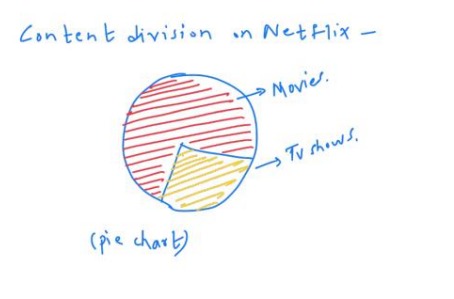 Content division on Netflix –
Movies.
Tv shows.
(pie chart)